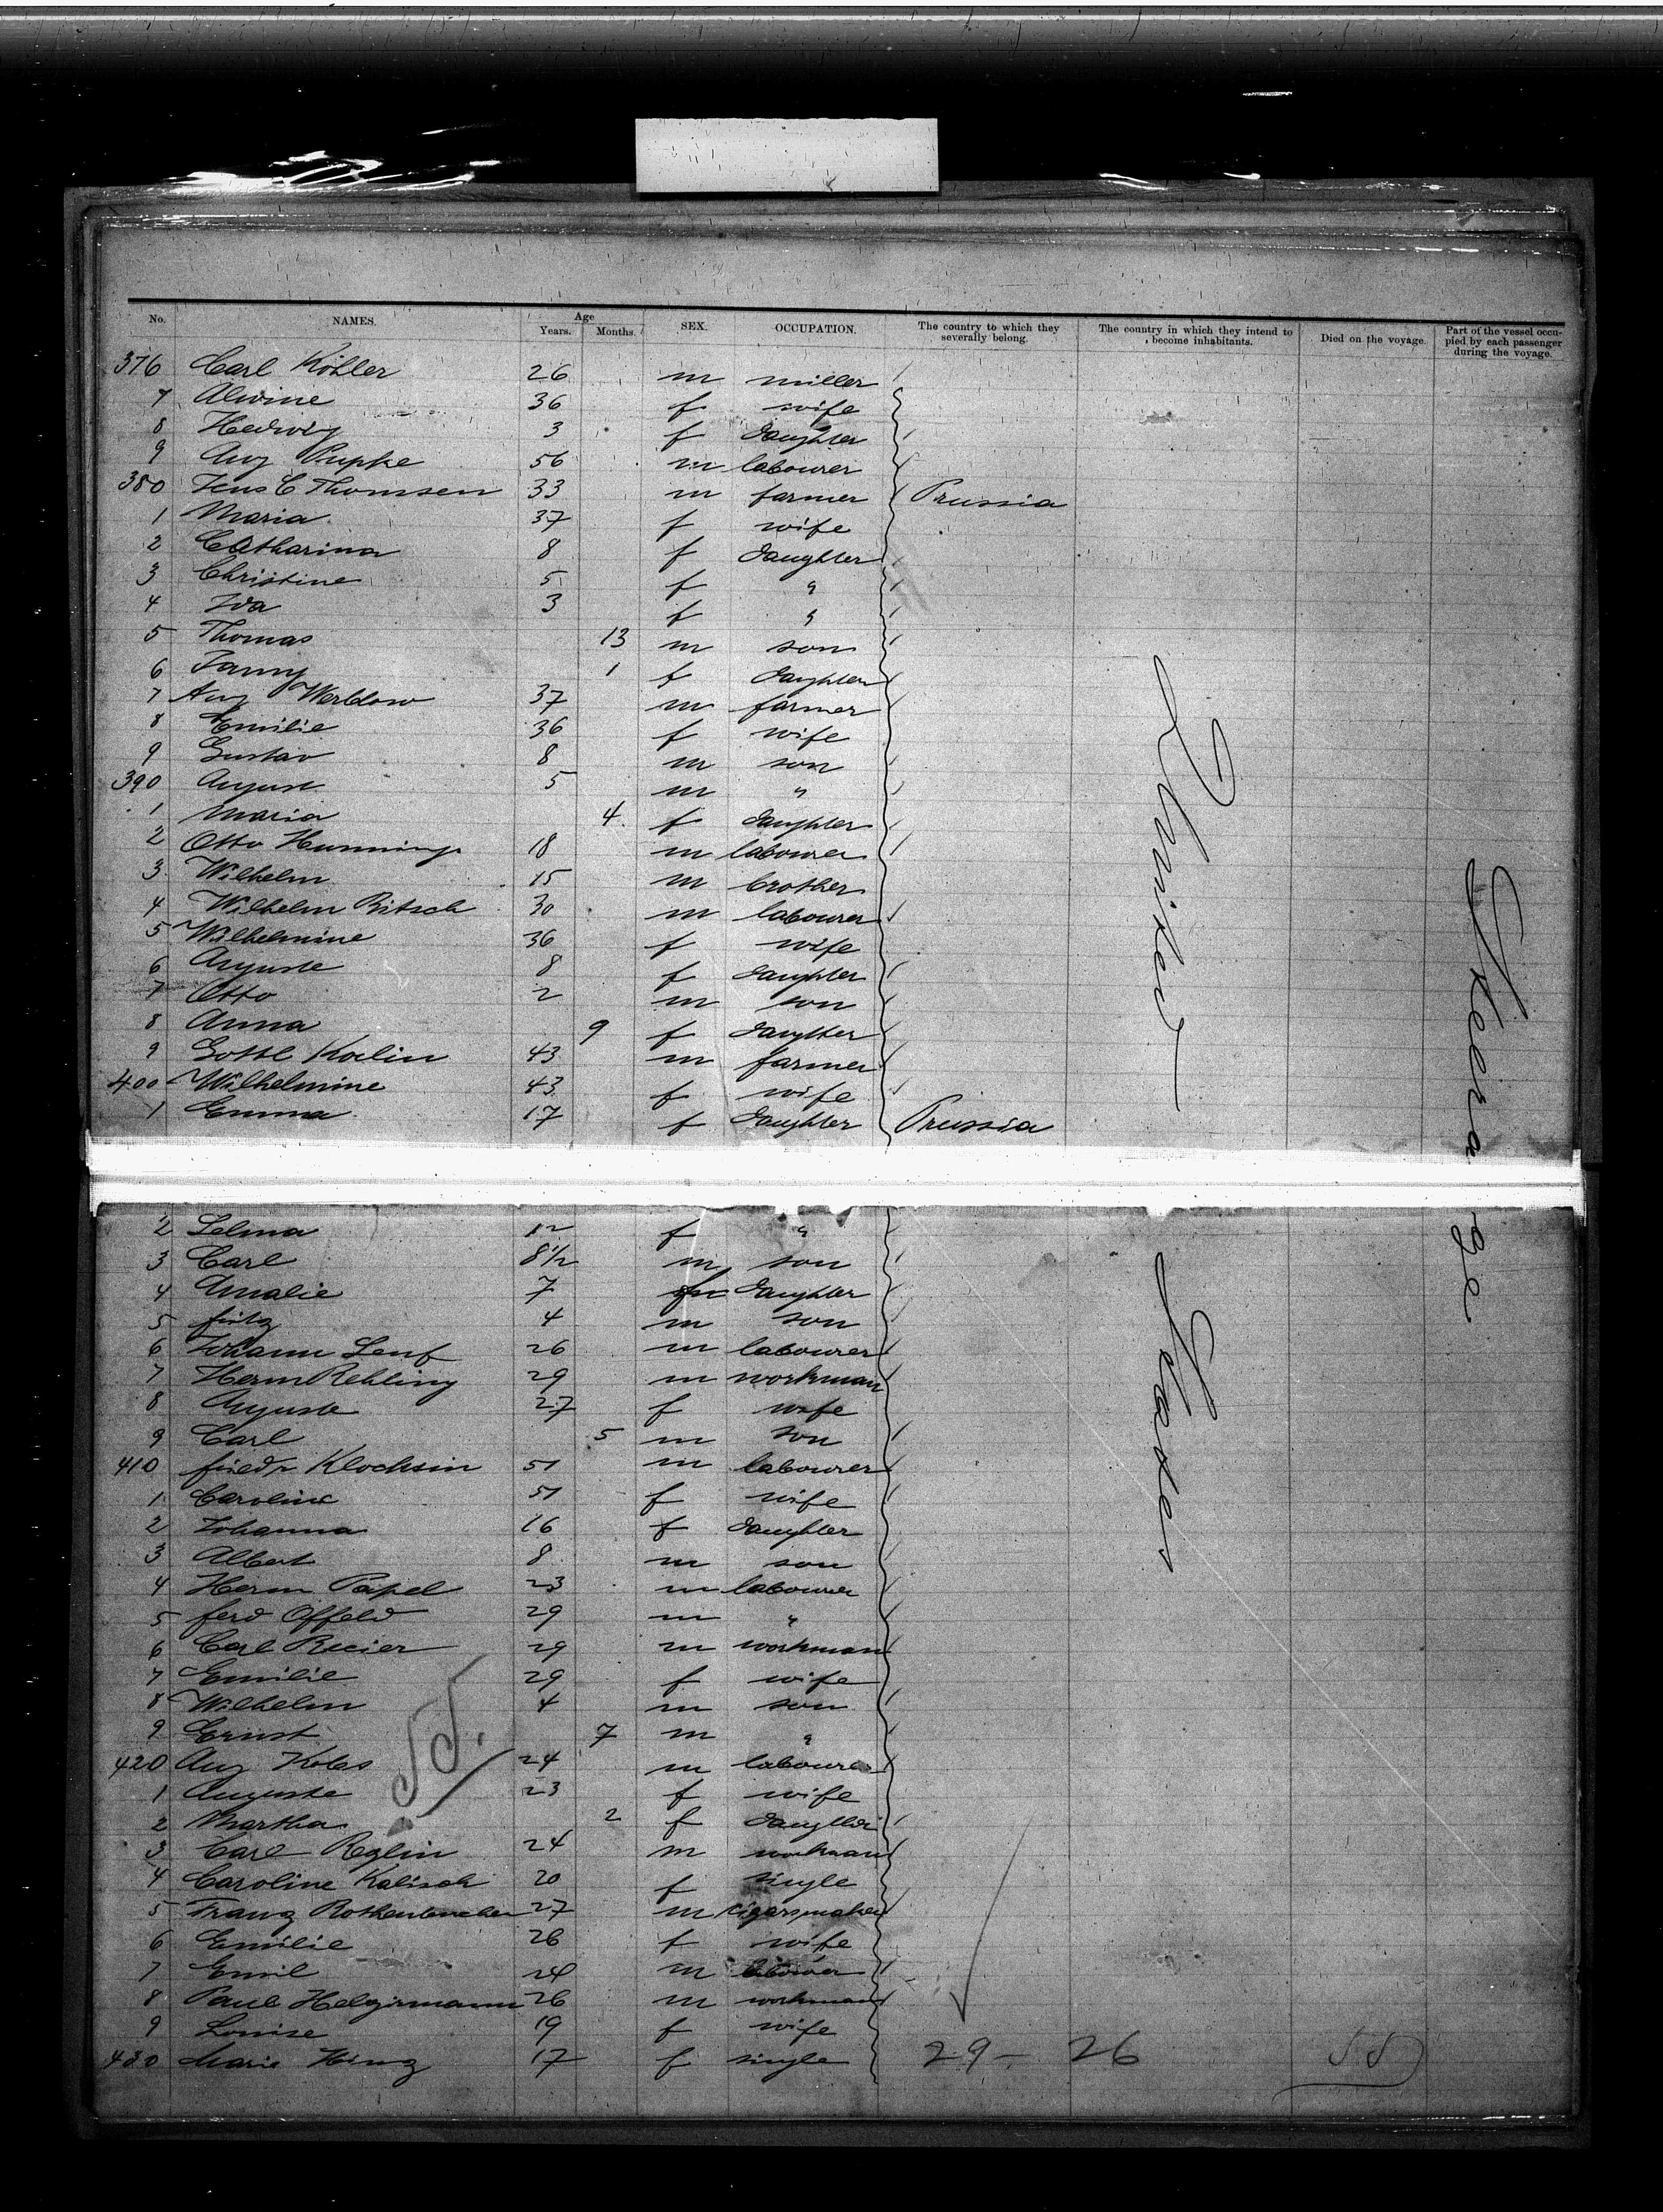 No. NAMES. Age Years. Months. SEX. OCCUPATION. The country to which they severally belong. The country in which they intend to become inhabitants. Died on the voyage. Part of the vessel occupied by each passenger during the voyage.
376 Carl Köhler 26 m miller
7 Alwine 36 f wife
8 Hedwig 3 f daughter
9 Aug Pupke 56 m labourer
380 Jens C Thomsen 33 m farmer Prussia
1 Maria 37 f wife
2 Catharina 8 f daughter
3 Christine 5 f "
4 Ida 3 f "
5 Thomas 13 m son
6 Fanny 1 f daughter
7 Aug Werdow 37 m farmer
8 Emilie 36 f wife
9 Gustav 8 m son
390 August 5 m "
1 Maria 4 f daughter
2 Otto Hennings 18 m labourer
3 Wilhelm 15 m brother
4 Wilhelm Bitsch 30 m labourer
5 Wilhelmine 36 f wife
6 Auguste 8 f daughter
7 Otto 2 m son
8 Anna 9 f daughter
9 Gottl 43 m farmer
400 Wilhelmine 43 f wife
1 Emma 17 f daughter Prussia
2 Selma 12 f "
3 Carl 8 1/2 m son
4 Amalie 7 f daughter
5 fritz 4 m son
6 Johann Senf 26 m labourer
7 Herm Rehling 29 m workman
8 Auguste 27 f wife
9 Carl 5 m son
410 friedr Klocksin 51 m labourer
1 Caroline 51 f wife
2 Johanna 16 f daughter
3 Albert 8 m son
4 Herm Papel 23 m labourer
5 ferd Offeld 29 m "
6 Carl 29 m workman
7 Emilie 29 f wife
8 Wilhelm 4 m son
9 Ernst 7 m "
420 Aug Kobs 24 m labourer
1 Auguste 23 f wife
2 Martha 2 f daughter
3 Carl Reglin 24 m workman
4 Caroline Kalisch 20 f single
5 Franz 27 m cigarsmaker
6 Emilie 26 f wife
7 Emil 24 m labourer
8 Paul 26 m workman
9 Louise 19 f wife
430 Marie Hinz 17 f single
United States
Steerage
55.
29 - 26 55